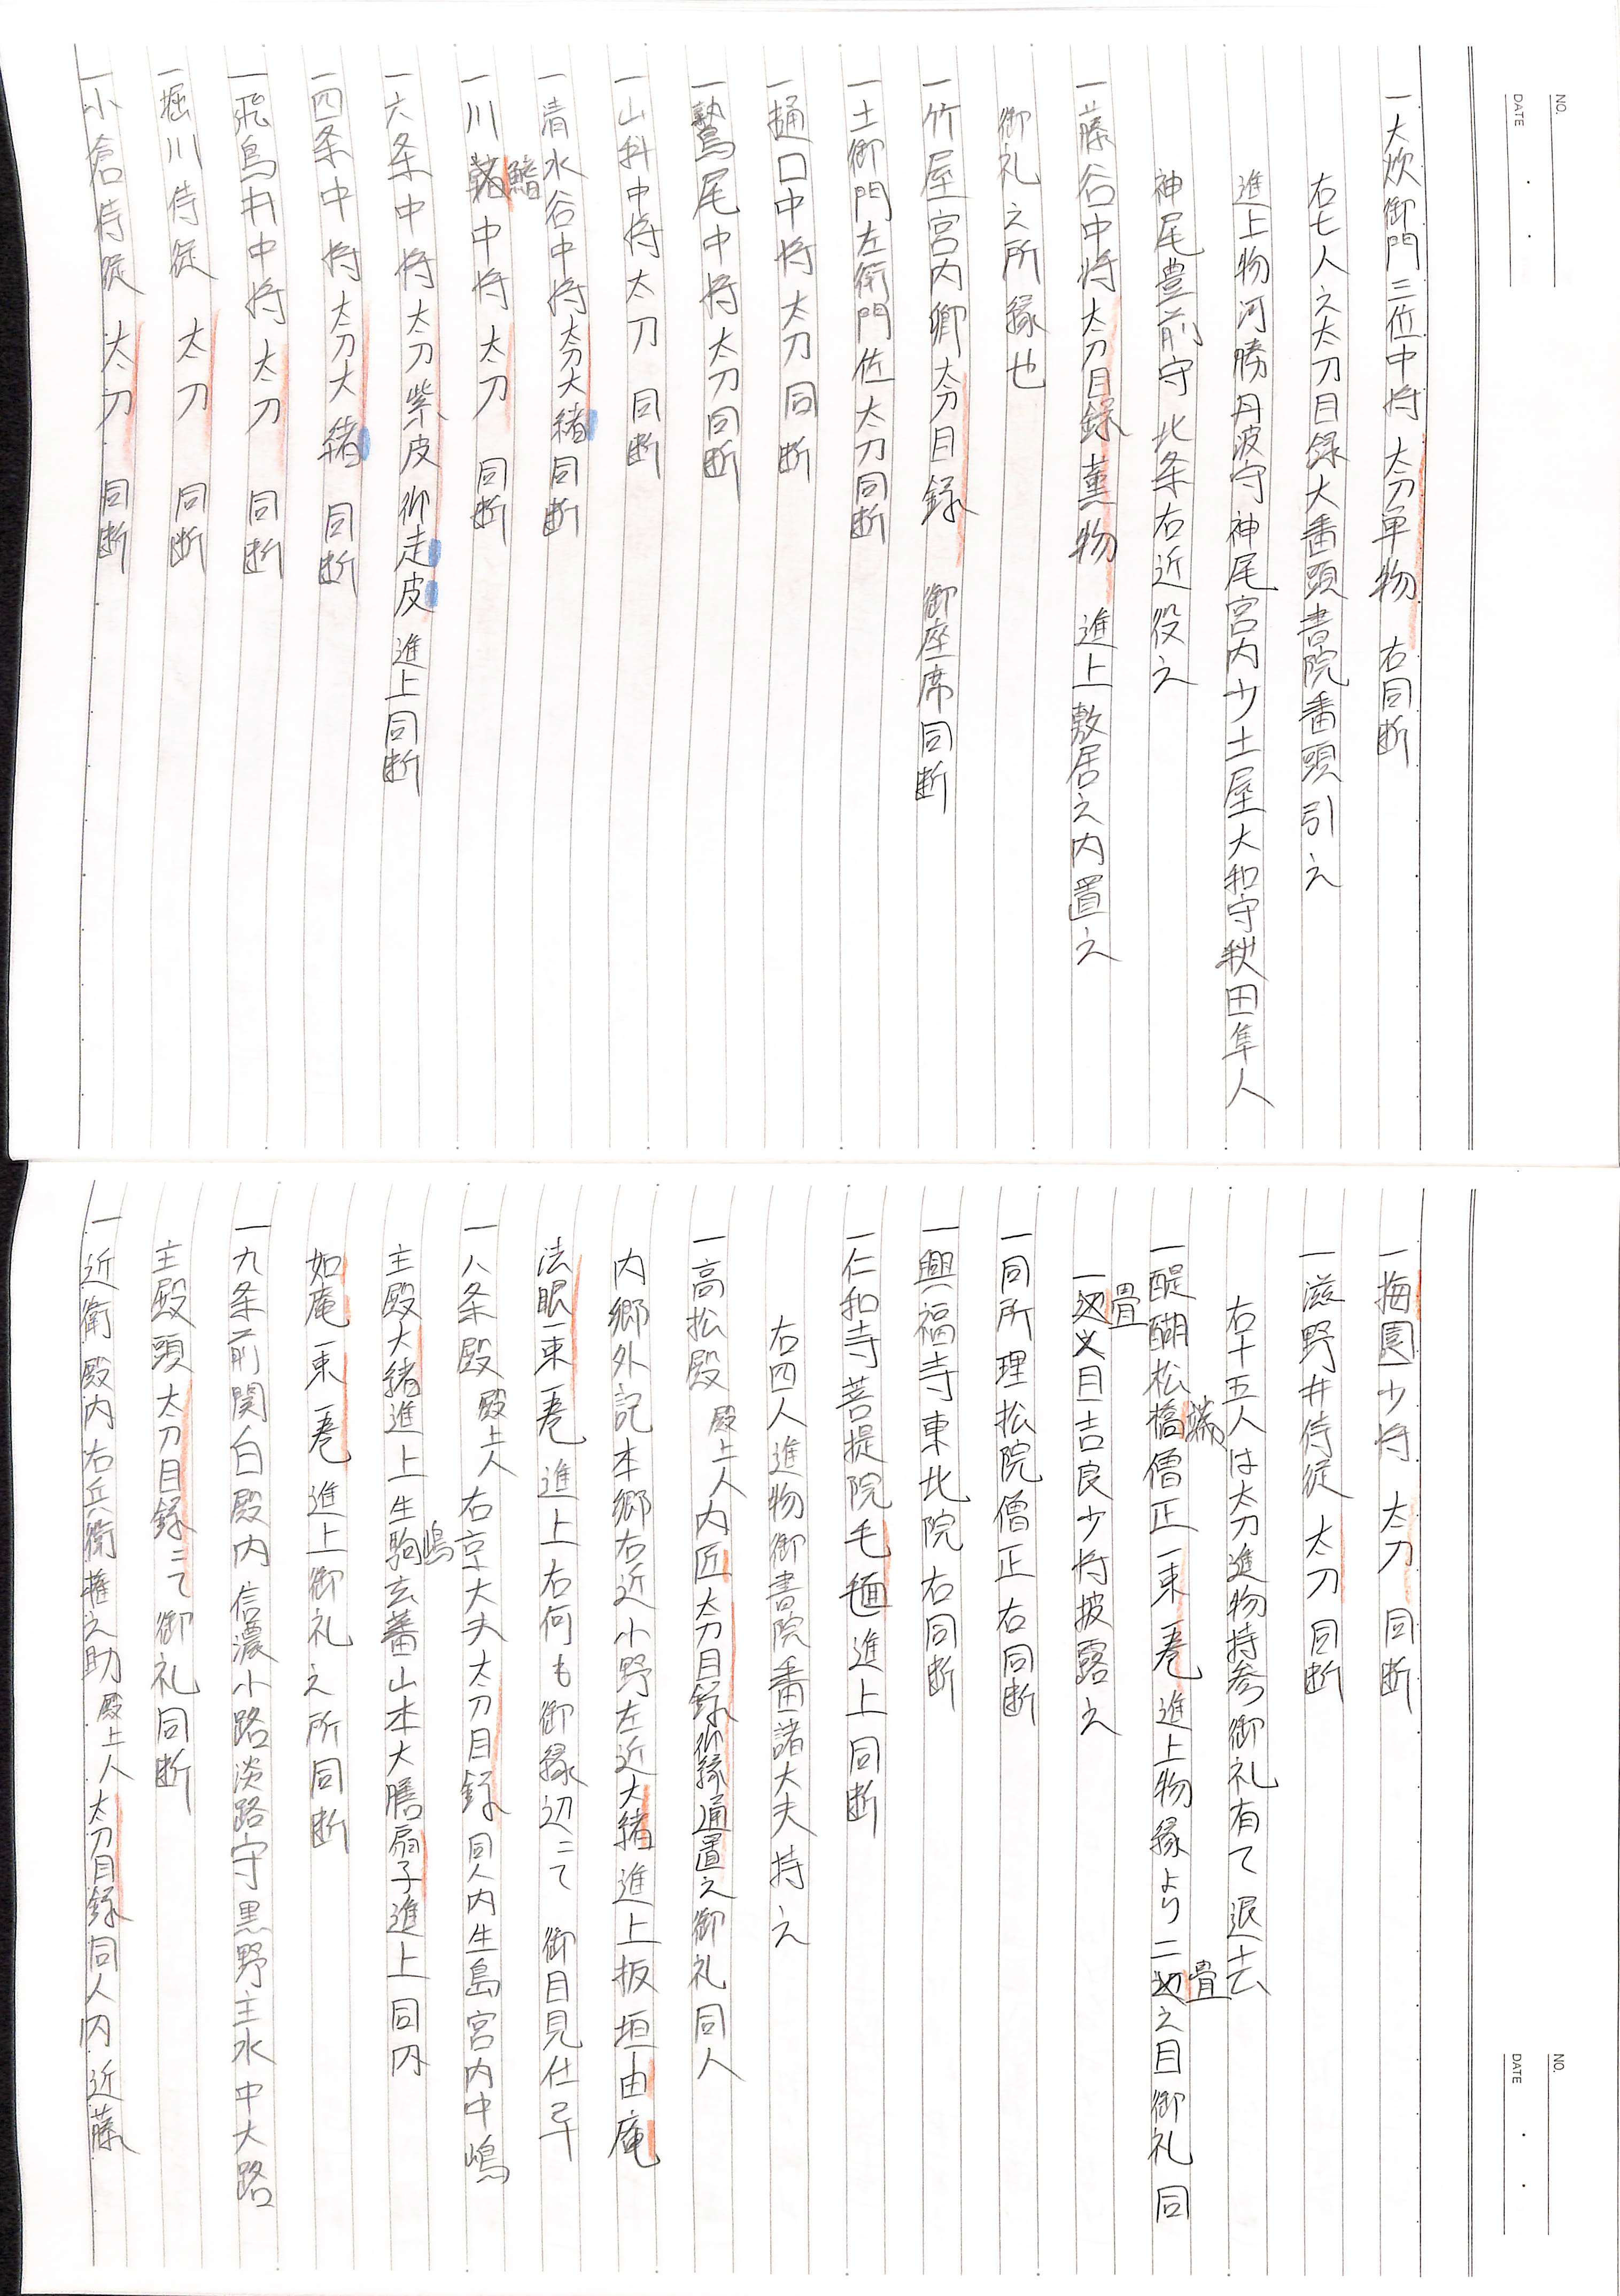 NO.
DATE
一大炊御門三位中将 太刀単物 右同断
右七人之太刀目録大番頭書院番頭引之
進上物河勝丹波守神尾宮内少土屋大和守秋田隼人
神尾豊前守北条右近役之
一藤谷中将太刀目録薫物 進上敷居之内置之
御礼之所縁也
一竹屋宮内卿太刀目録 御座席同断
一土御門左衛門佐太刀同断
一樋口中将太刀同断
一鷲尾中将太刀同断
一山科中将太刀 同断
一清水谷中将太刀大緒同断
一川鰭中将太刀 同断
一六条中将太刀紫皮仰走皮進上同断
一四条中将太刀大緒 同断
一飛鳥井中将太刀 同断
一堀川侍従 太刀 同断
一小倉侍従 太刀 同断
NO.
DATE
一梅園少将 太刀 同断
一滋野井侍従 太刀 同断
右十五人は太刀進物持参御礼有て退去
一醍醐松橋僧正一束一巻進上物縁より二畳之目御礼同
一畳目吉良少将披露之
一同所理松院僧正右同断
一興福寺東北院右同断
一仁和寺菩提院毛氈進上同断
右四人進物御書院番諸大夫持之
一高松殿 殿上人内匠太刀目録仰縁通置之御礼同人
内郷外記本郷右近小野左近大緒進上板垣由庵
法眼一束一巻進上右何も御縁辺ニて御目見仕畢
一八条殿 殿上人 右京大夫太刀目録同人内生島宮内中嶋
主殿大緒進上生嶋玄蕃山本大膳扇子進上同内
如庵一束一巻進上御礼之所同断
一九条前関白殿内信濃小路淡路守黒野主水中大路
主殿頭太刀目録ニて御礼同断
一近衛殿内右兵衛権之助 殿上人太刀目録同人内近藤